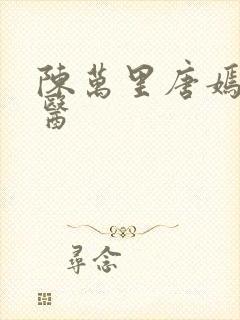 陳萬里唐嫣
醫
尋念